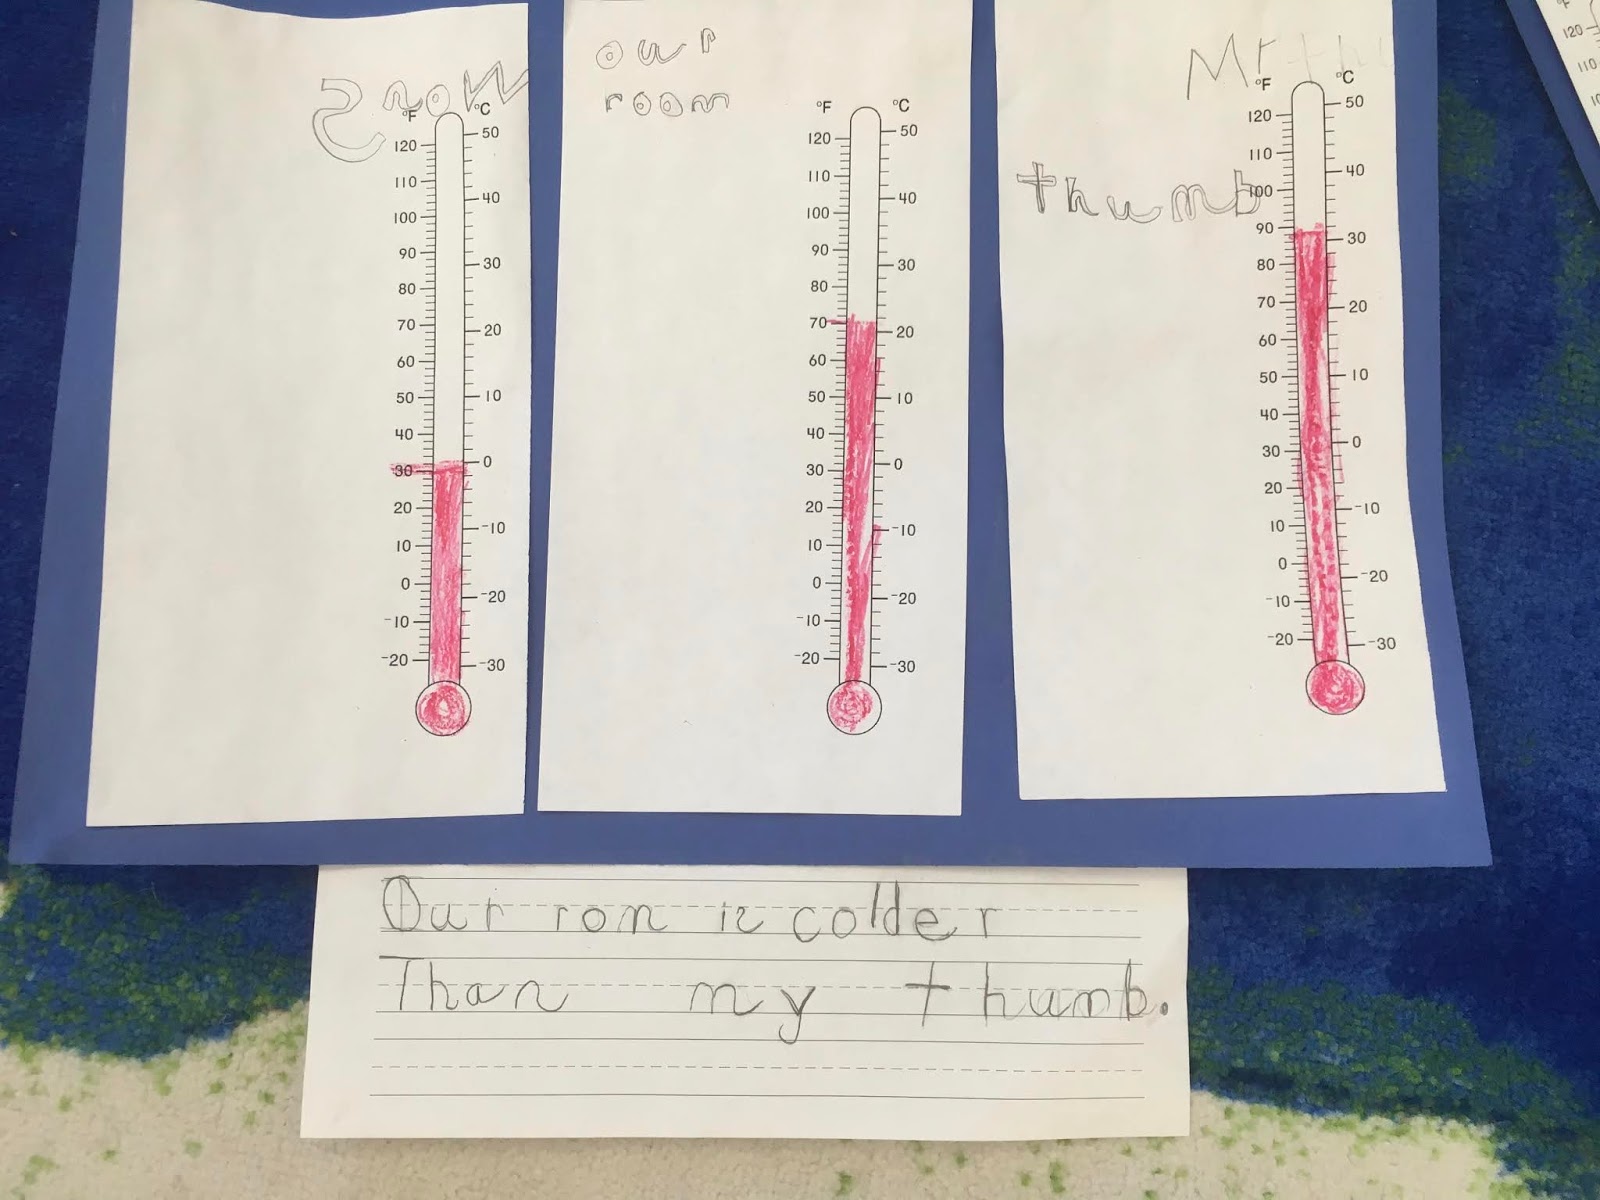 Snow
°F °C
120
110
100
90
80
70
60
50
40
30
20
10
0
-10
-20
50
40
30
20
10
0
-10
-20
-30
our
room
°F °C
120
110
100
90
80
70
60
50
40
30
20
10
0
-10
-20
50
40
30
20
10
0
-10
-20
-30
Mr
thumb
°F °C
120
110
100
90
80
70
60
50
40
30
20
10
0
-10
-20
50
40
30
20
10
0
-10
-20
-30
°F
120
110
Our rom is colder
Than my thumb.